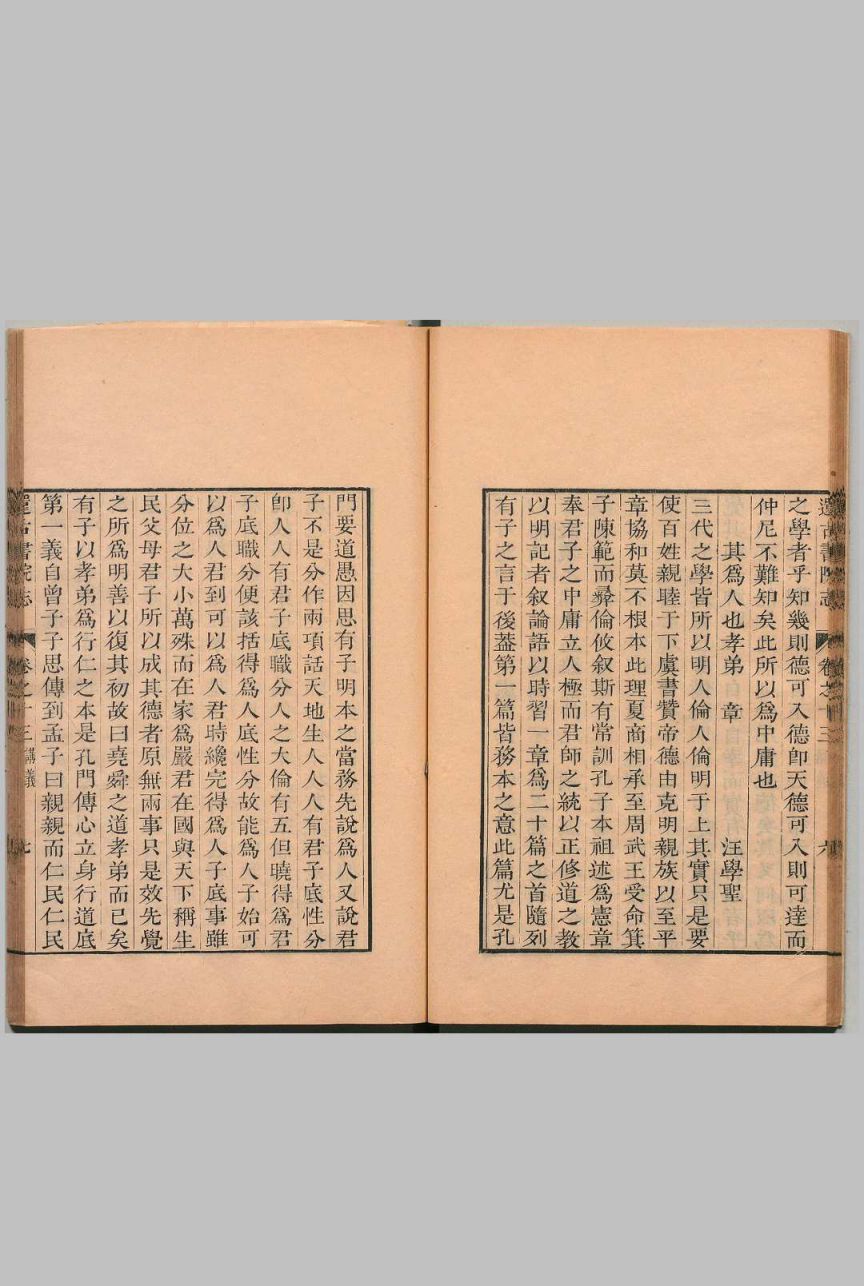 還古書院志 卷之十三 六
之學者乎知幾則德可入德卽天德可入則可達而
仲尼不難知矣此所以爲中庸也
其爲人也孝弟 章 汪學聖
三代之學皆所以明人倫人倫明于上其實只是要
使百姓親睦于下虞書贊帝德由克明親族以至平
章協和莫不根本此理夏商相承至周武王受命箕
子陳範而彞倫攸叙斯有常訓孔子本祖述爲憲章
奉君子之中庸立人極而君師之統以正修道之教
以明記者叙論語以時習一章爲二十篇之首隨列
有子之言于後葢第一篇皆務本之意此篇尤是孔
門要道愚因思有子明本之當務先說爲人又說君
子不是分作兩項話天地生人人人有君子底性分
卽人人有君子底職分人之大倫有五但曉得爲君
子底職分便該括得爲人底性分故能爲人子始可
以爲人君到可以爲人君時纔完得爲人子底事雖
分位之大小萬殊而在家爲嚴君在國與天下稱生
民父母君子所以成其德者原無兩事只是效先覺
之所爲明善以復其初故曰堯舜之道孝弟而已矣
有子以孝弟爲行仁之本是孔門傳心立身行道底
第一義自曾子子思傳到孟子曰親親而仁民仁民
還古書院志 卷之十三 講義 七